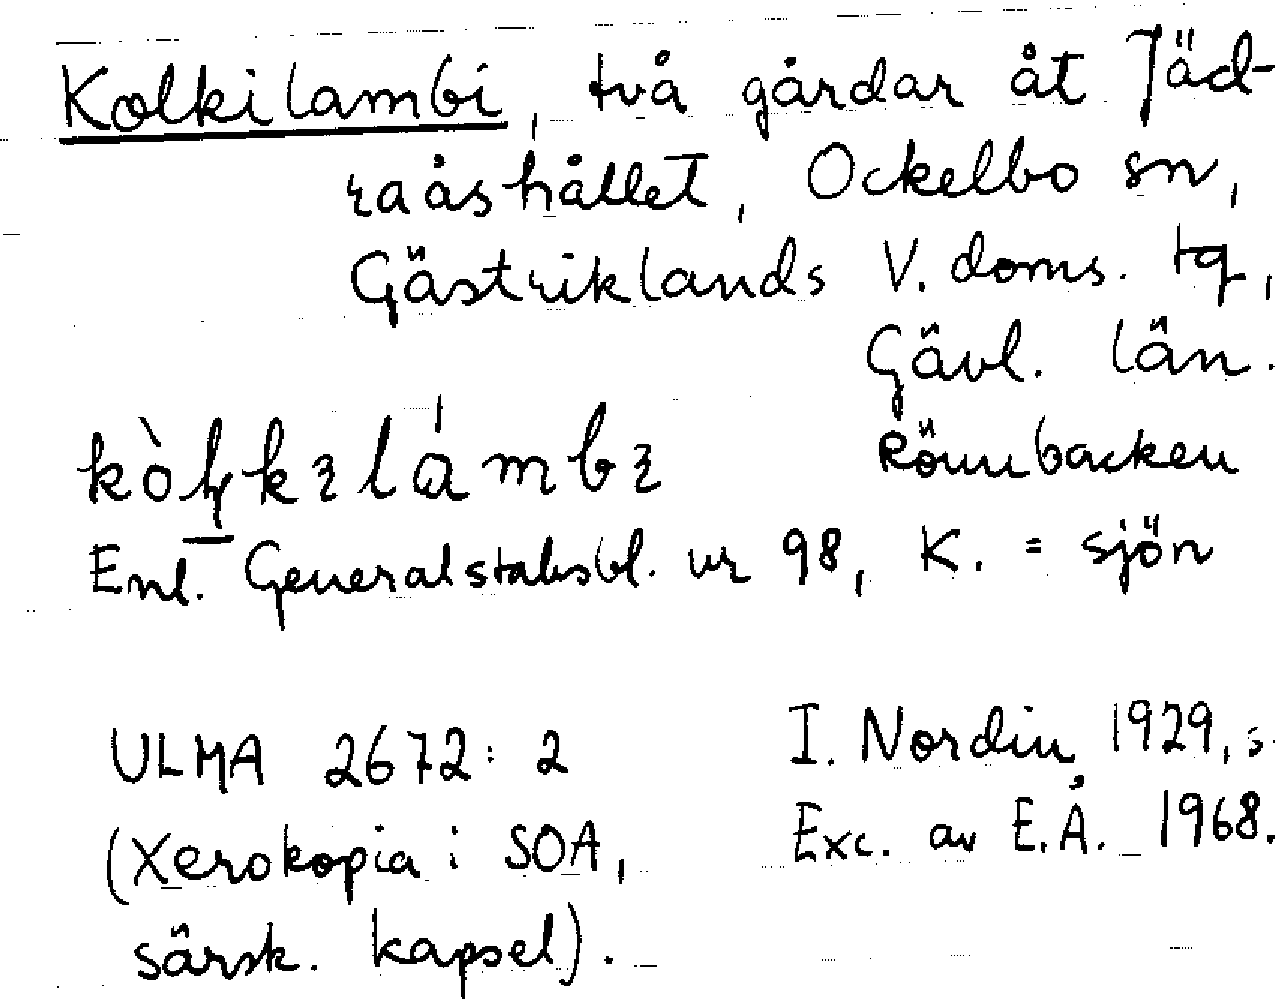 Kolkilambi, två gårdar åt Jäd-
raåshållet, Ockelbo sn,
Gästriklands V. doms. tg,
Gävl. län.
Rönnbacken
Enl. Generalstabsbl. nr 98, K. = sjön
ULMA 2672: 2
I. Nordin 1929, s.
(Xerokopia i SOA,
Exc. av E.Å. 1968.
särsk. kapsel).